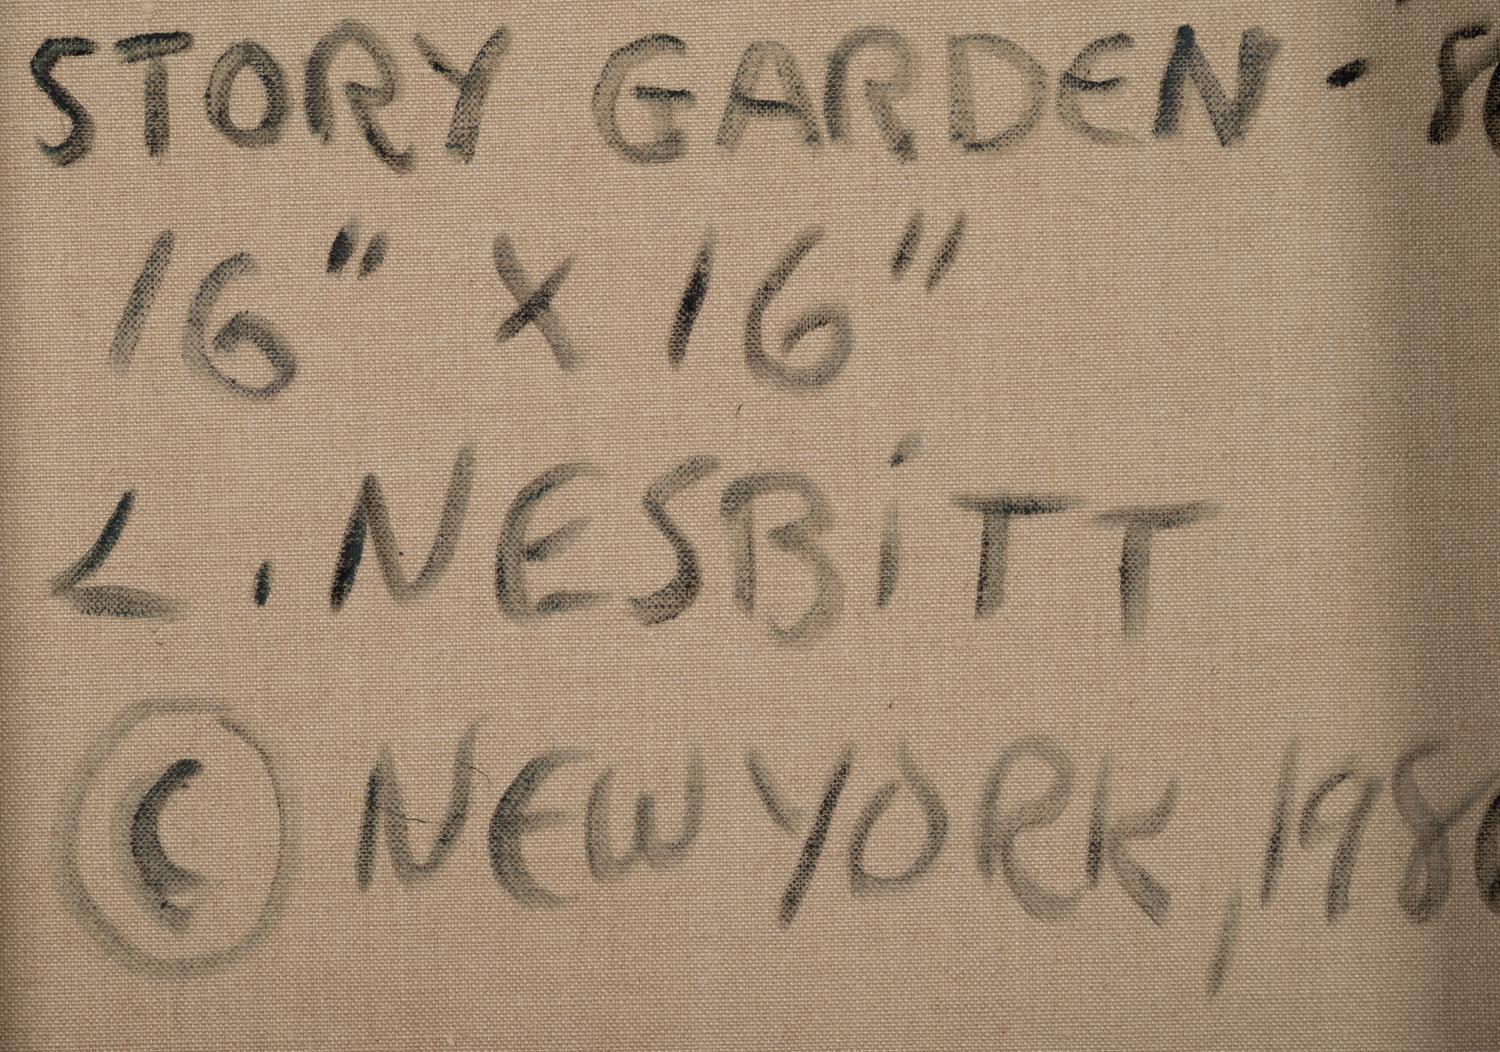 STORY GARDEN -
16" X 16"
L. NESBiTT
© NEW YORK,